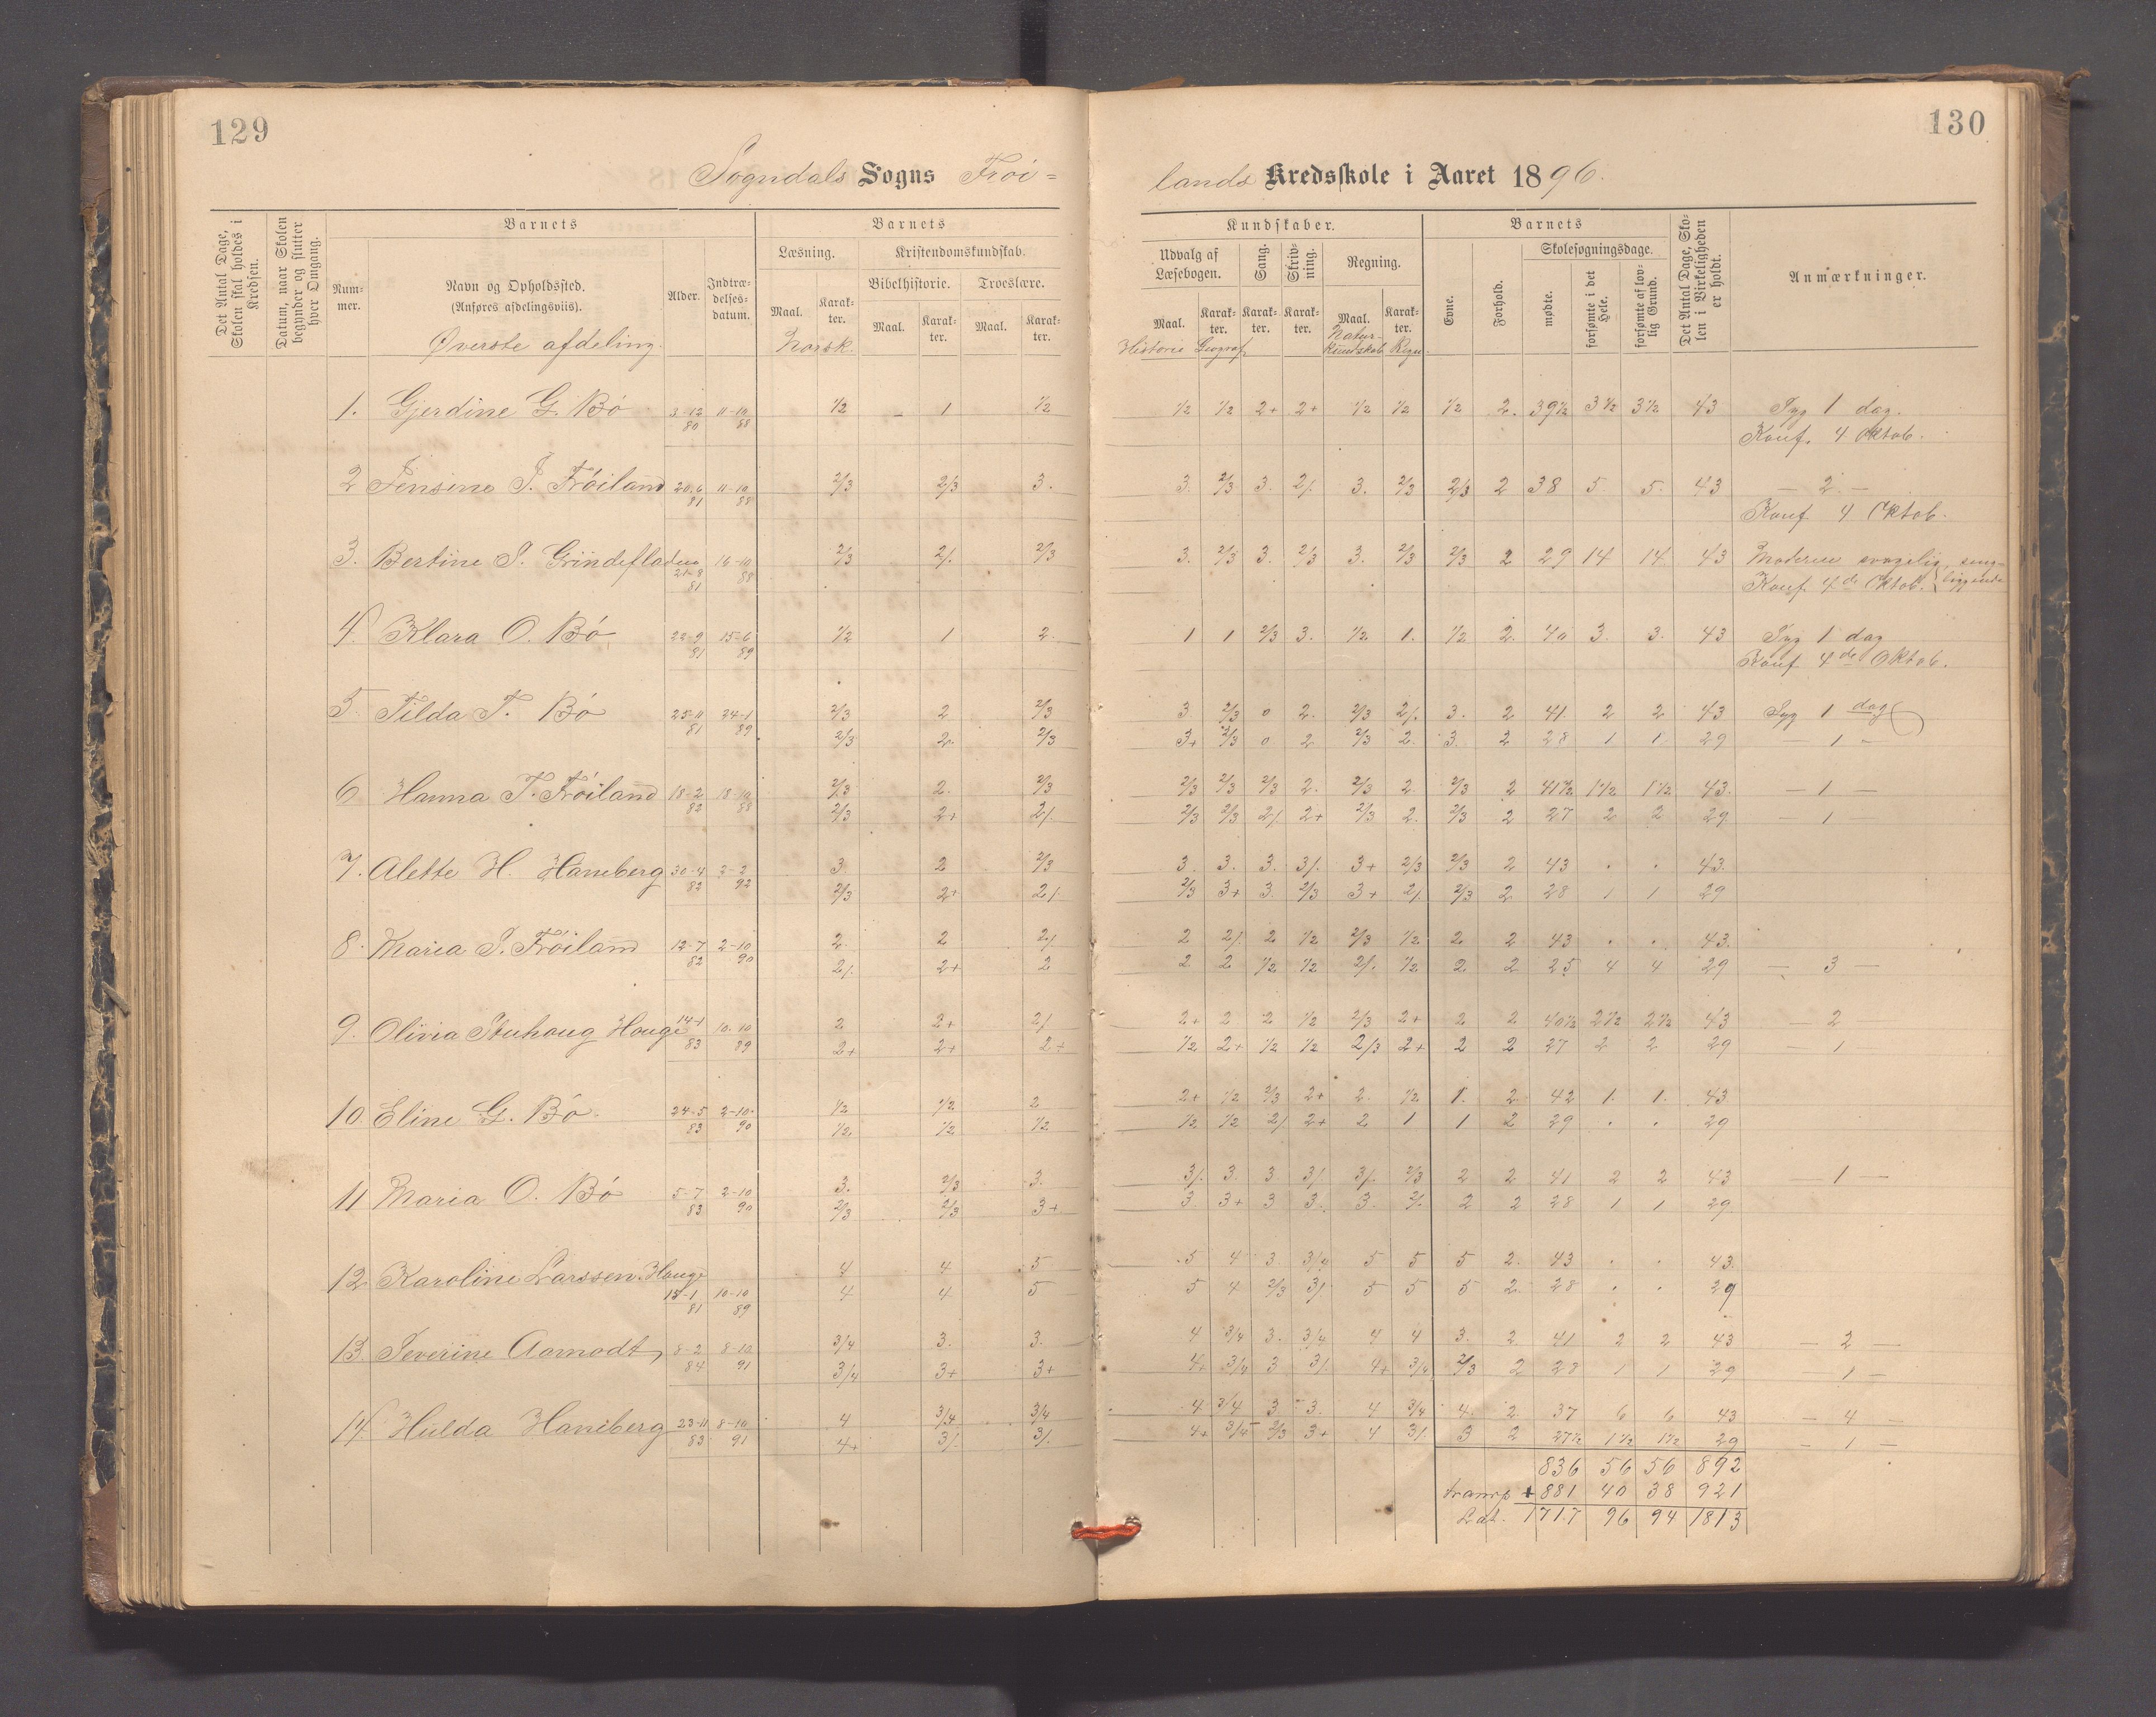 129
130
Sogndals Sogns Frøi=
lands Kredsskole i Aaret 1896.
Det Antal Dage, Skolen skal holdes i Kredsen.
Datum, naar Skolen begynder og slutter hver Omgang.
Barnets
Nummer.
Navn og Opholdssted.
(Anføres afdelingsviis).
Øverste afdeling.
Alder.
Indtrædelses-datum.
Barnets
Læsning.
Kristendomskundskab.
Bibelhistorie. Troeslære.
Maal. Karakter. Maal. Karakter. Maal. Karakter.
Norsk.
Kundskaber.
Udvalg af Læsebogen. Sang. Skrivning. Regning.
Maal. Karakter. Karakter. Karakter. Maal. Karakter.
Historie Geograf. Naturkundskab Regn.
Barnets
Evne. Forhold.
Skolesøgningsdage.
mødte. forsømte i det Hele. forsømte af lovlig Grund.
Det Antal Dage, Skolen i Virkeligheden er holdt.
Anmærkninger.
1. Gjerdine G. Bö 3-12 80 11-10 88 1/2 1 1/2 1/2 1/2 2+ 2+ 1/2 1/2 1/2 2. 39 1/2 3 1/2 3 1/2 43 Syg 1 dag.
Konf. 4 Oktob.
2 Jensine J. Fröiland 20-6 81 11-10 88 2/3 2/3 3. 3. 2/3 3. 2/. 3. 2/3 2/3 2 38 5 5. 43 — 2 —
Konf. 4 Oktob.
3. Bertine S. Grindefladen 21-8 81 16-10 88 2/3 2/. 2/3 3. 2/3 3. 2/3 3. 2/3 2/3 2 29 14 14. 43
Konf. 4de Oktob.
4. Klara O. Bö 22-9 81 15-6 89 1/2 1 2. 1 1 2/3 3. 1/2 1. 1/2 2. 40 3. 3. 43 Syg 1 dag
Konf. 4de Oktob.
5 Tilda T. Bö 25-11 81 24-1 89 2/3 2 2/3 3. 2/3 0 2. 2/3 2/. 3. 2 41. 2 2 43 Syg 1 dag
2/3 2. 2/3 3+ 2/3 0 2 2/3 2. 3. 2 28 1 1 29 — 1 —
6 Hanna T. Fröiland 18-2 82 18-10 88 2/3 2. 2/3 2/3 2/3 2/3 2. 2/3 2. 2/3 2 41 1/2 1 1/2 1 1/2 43. — 1 —
2/3 2+ 2/. 2/3 2/3 2/. 2+ 2/3 2. 2/3 2 27 2 2 29 — 1 —
7. Alette H. Haneberg 30-4 82 2-2 92 3. 2 2/3 3. 3. 3. 3/. 3+ 2/3 2/3 2 43 . . 43.
2/3 2+ 2/. 2/3 3+ 3. 2/3 3+ 2/. 2/3 2 28 1 1 29
8. Maria S. Fröiland 12-7 82 2-10 90 2. 2 2/. 2 2/. 2 1/2 2/3 1/2 2 2 43 . . 43.
2/. 2+ 2 2. 2 1/2 1/2 2/. 1/2 2 2 25 4 4 29 — 3 —
9. Olivia Stuhaug Hauge 14-1 83 10-10 89 2 2+ 2/. 2+ 2 2 1/2 2/3 2+ 2 2 40 1/2 2 1/2 2 1/2 43 — 2 —
2+ 2+ 2+ 1/2 2+ 1/2 1/2 2/3 2+ 2 2 27 2 2 29 — 1
10. Eline G. Bö. 24-5 83 2-10 90 1/2 1/2 2 2+ 1/2 2/3 2+ 2. 1/2 1. 2. 42 1. 1. 43
1/2 1/2 1/2 1/2 1/2 2/. 2+ 2 1 1 2 29 . . 29
11 Maria O. Bö 5-7 83 2-10 90 3. 2/3 3. 3/. 3. 3 3/. 3/. 2/3 2 2 41 2 2 43 — 1 —
2/3 2/3 3+ 3 3+ 3 3. 3. 2/. 2 2 28 1 1 29
12. Karoline Larssen Hauge 15-1 81 10-10 89 4 4 5 5 4 3 3/4 5 5 5 2. 43 . . 43.
4 4 5 5 4 2/3 3/. 5 5 5 2. 28 . . 29
13. Severine Aamodt, 8-2 84 8-10 91 3/4 3. 3. 4 3/4 3. 3/4 4 4 3. 2 41 2 2 43 — 2 —
3/4 3+ 3+ 4+ 3/4 3 3/. 4+ 3/4 2/3 2 28 1 1 29 — 1 —
14. Hulda Haneberg 23-11 83 8-10 91 4 3/4 3/4 4 3/4 3. 3. 4 3/4 4. 2. 37 6 6 43 — 4 —
4+ 3/. 3/. 4+ 3/4 2/3 3+ 4 3/. 3 2 27 1/2 1 1/2 1 1/2 29 — 1 —
836 56 56 892
transp + 881 40 38 921
Lat. 1717 96 94 1813